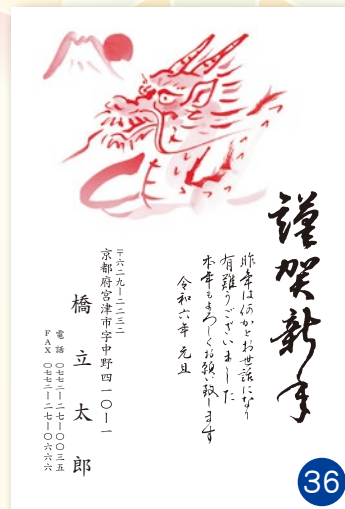 謹賀新年
昨年は何かとお世話になり
有難うございました
本年もよろしくお願い致します
令和六年 元旦
〒六二九-二二三二
京都府宮津市字中野四一〇-一
橋立太郎
電話 〇七七二-二七-〇〇三五
FAX 〇七七二-二七-〇六六六
36